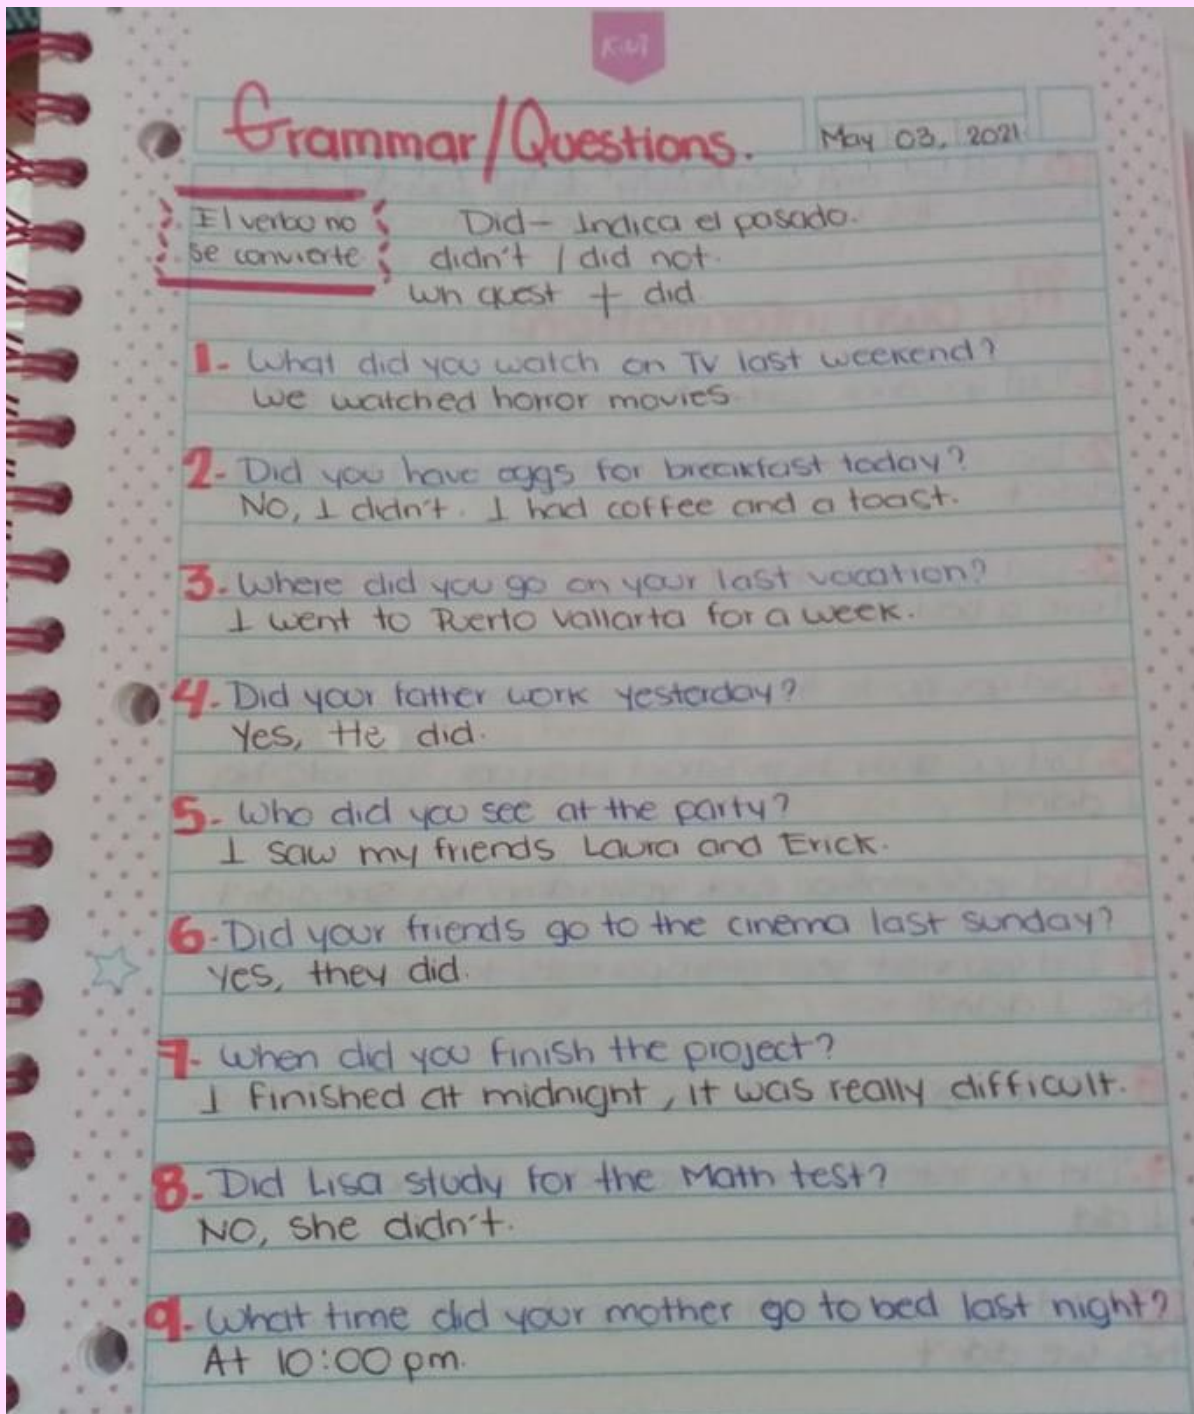 Kiut
Grammar/Questions.
May 03, 2021
El verbo no
se convierte
Did - Indica el pasado.
didn't / did not.
wh quest + did
1- What did you watch on TV last weekend?
We watched horror movies.
2- Did you have eggs for breakfast today?
No, I didn't. I had coffee and a toast.
3- Where did you go on your last vacation?
I went to Puerto Vallarta for a week.
4- Did your father work yesterday?
Yes, He did.
5- Who did you see at the party?
I saw my friends Laura and Erick.
6- Did your friends go to the cinema last sunday?
Yes, they did.
7- When did you finish the project?
I finished at midnight, it was really difficult.
8- Did Lisa study for the Math test?
NO, she didn't.
9- What time did your mother go to bed last night?
At 10:00 pm.